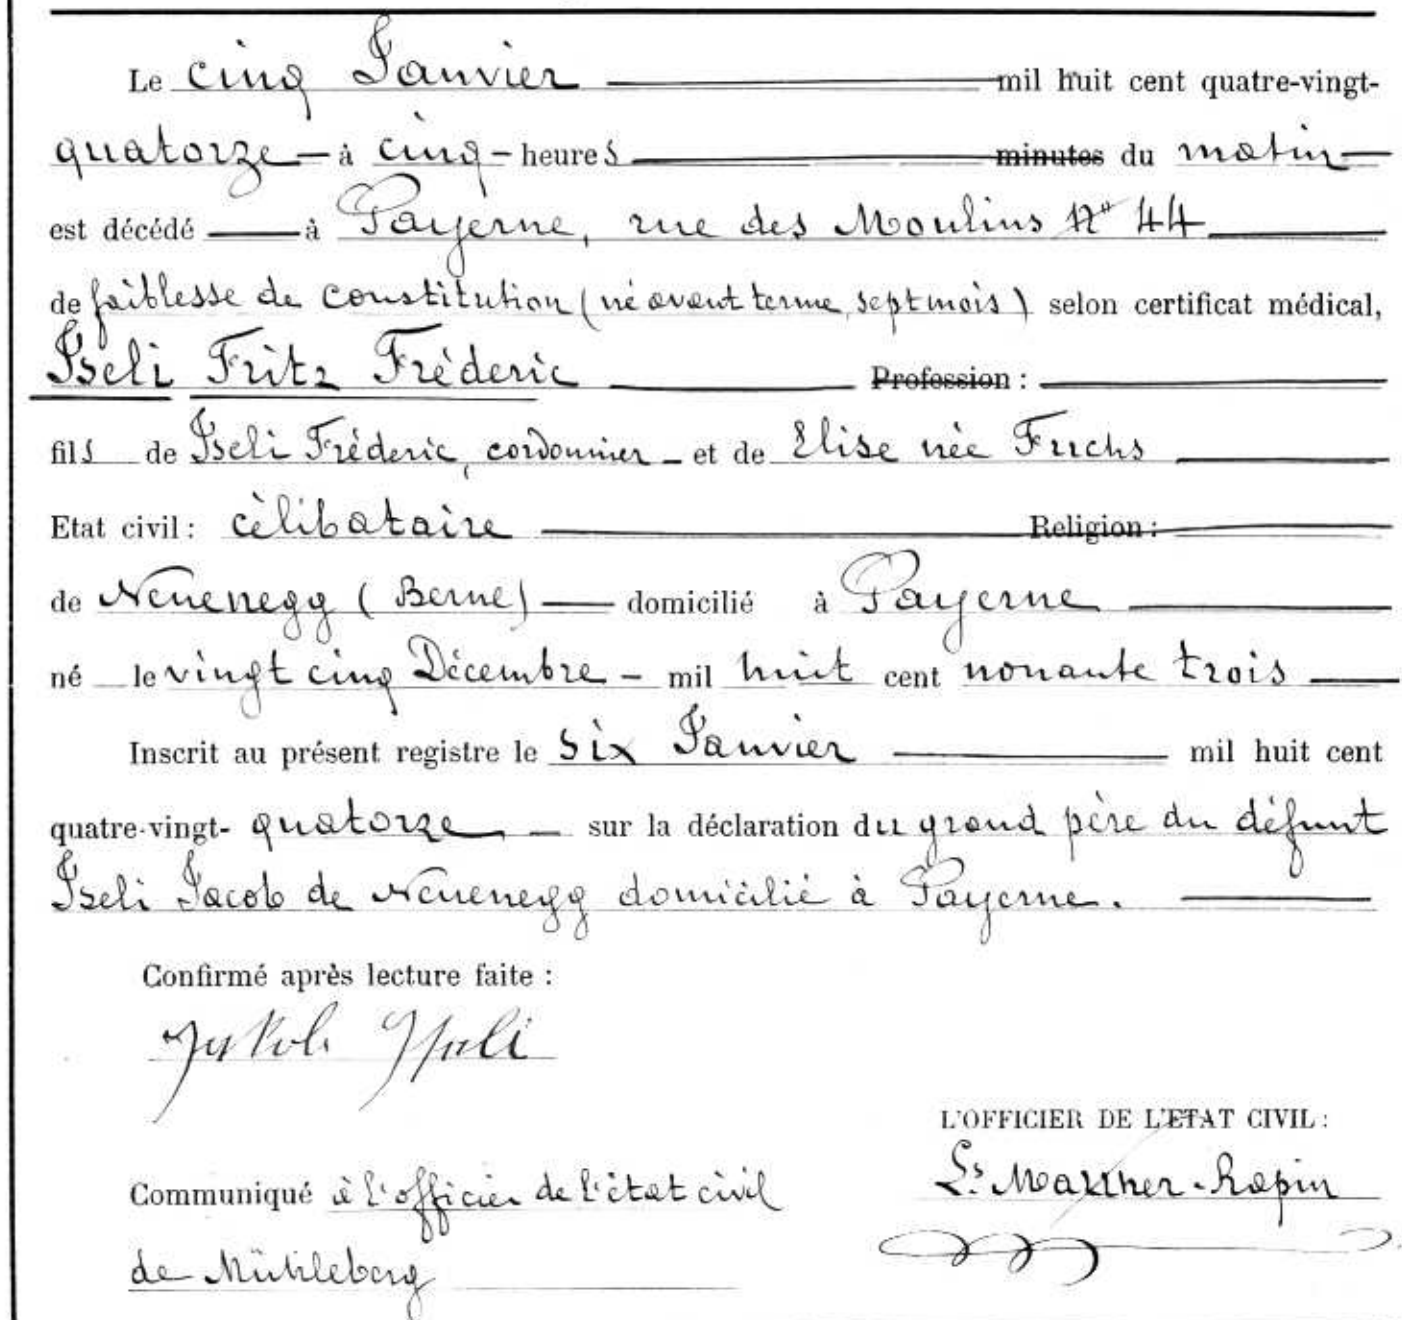 Le cinq Janvier mil huit cent quatre-vingt-
quatorze à cinq heures minutes du matin
est décédé à Payerne, rue des Moulins No 44
de faiblesse de constitution (né avant terme, sept mois) selon certificat médical,
Iseli Fritz Fréderic Profession :
fils de Iseli Fréderic, cordonnier et de Elise née Fuchs
Etat civil : célibataire Religion :
de Neuenegg (Berne) domicilié à Payerne
né le vingt cinq Décembre mil huit cent nonante trois
Inscrit au présent registre le six Janvier mil huit cent
quatre-vingt- quatorze, sur la déclaration du grand père du défunt
Iseli Jacob de Neuenegg domicilié à Payerne.
Confirmé après lecture faite :
Jakob Iseli
L'OFFICIER DE L'ETAT CIVIL :
Communiqué à l'officier de l'état civil
Ls. Rapin
de Mühleberg